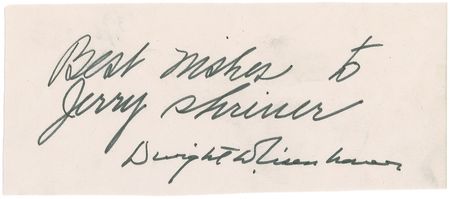 Best wishes to
Jerry Shriner
Dwight D. Eisenhower